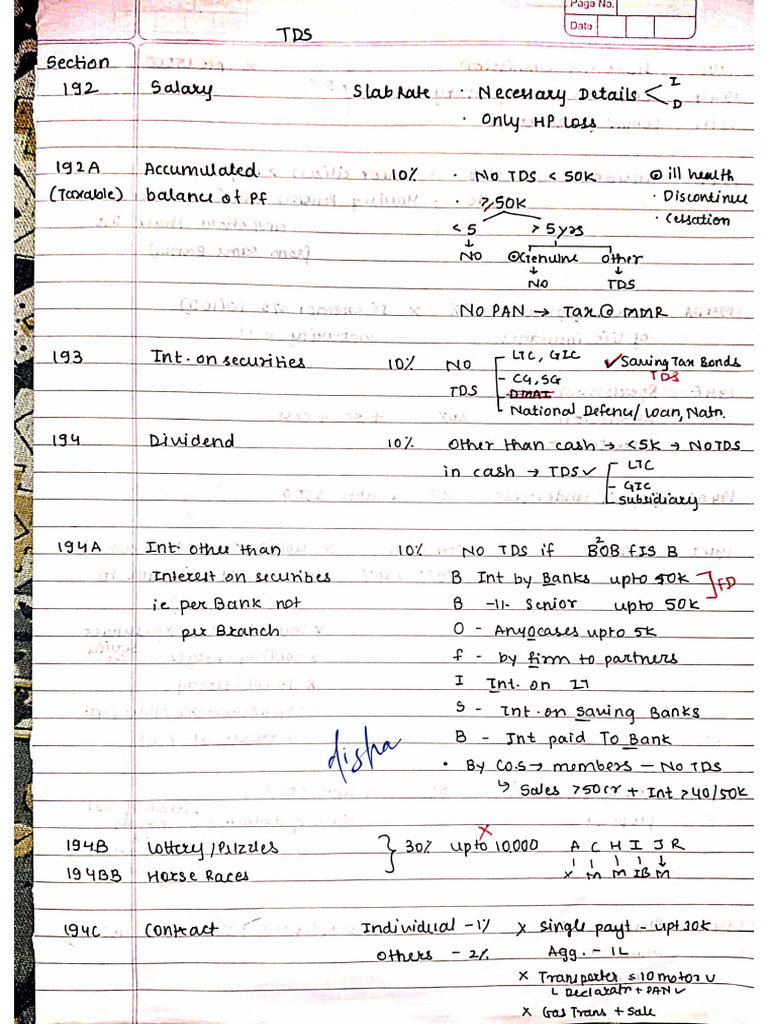 Page No.
Date
TDS
Section
192 Salary Slab Rate · Necessary Details < I
D
· Only HP Loss
192A Accumulated 10% · No TDS < 50K ⊙ ill health
(Taxable) balance of Pf · ≥ 50K · Discontinue
· Cessation
< 5 > 5 yrs
↓
NO ⊙ Genuine other
↓ ↓
NO TDS
NO PAN → Tax @ MMR
193 Int. on securities 10% NO LIC, GIC ✓ Saving Tax Bonds
TDS CG, SG TDS
DMAT
National Defence/ Loan, Natn.
194 Dividend 10% Other than cash → <5K → NO TDS
in cash → TDS ✓ LIC
GIC
Subsidiary
194A Int. other than 10% NO TDS if B²OB fIS B
Interest on securities B Int by Banks upto 40K ] FD
ie per Bank not B -11- Senior upto 50K
per Branch O - Any O cases upto 5K
f - by firm to partners
I Int. on IT
S - Int. on Saving Banks
disha B - Int paid To Bank
· By CO.S → members — No TDS
↳ Sales >50cr + Int >40/50K
194B Lottery/Puzzles } 30% upto 10,000 X A C H I J R
194BB Horse Races X M M IB M
194C Contract Individual -1% X Single payt - upt 30K
Others - 2% Agg. - 1L
X Transporter ≤ 10 motor v
↳ Declaratn + PAN ✓
X Gas Trans + Sale